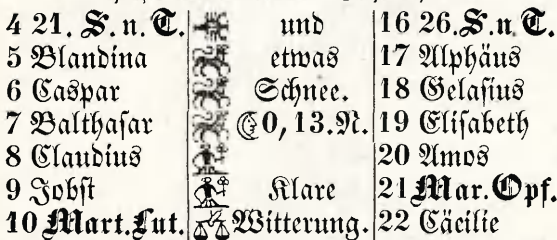 4 21. S. n. T. und 16 26. S. n. T.
5 Blandina etwas 17 Alphäus
6 Caspar Schnee. 18 Gelasius
7 Balthasar ☾0,13.N. 19 Elisabeth
8 Claudius 20 Amos
9 Jobst Klare 21 Mar. Opf.
10 Mart. Lut. Witterung. 22 Cäcilie